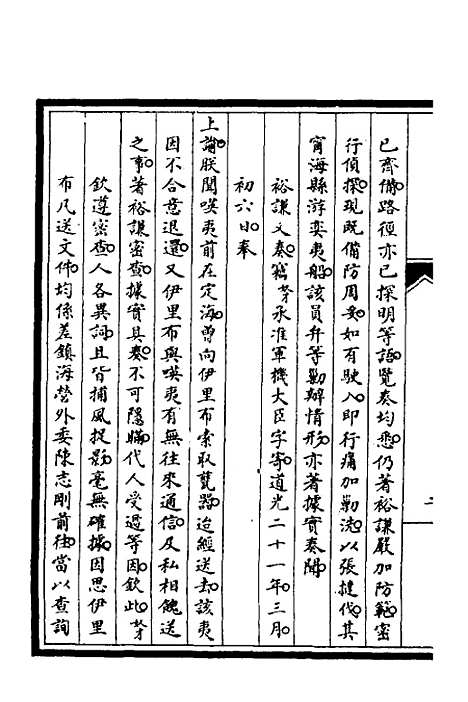 已齊備路徑亦已探明等語覽奏均悉仍著裕謙嚴加防範密
行偵探現既備防周妥如有駛入即行痛加勦洗以張撻伐其
甯海縣游奕夷船該員弁等勦辦情形亦著據實奏聞
裕謙又奏竊㚬承准軍機大臣字寄道光二十一年三月
初六日奉
上諭朕聞嘆夷前在定海曾向伊里布索取甖器迨經送去該夷
因不合意退還又伊里布與嘆夷有無往來通信及私相餽送
之事著裕謙密查據實具奏不可隱瞞代人受過等因欽此㚬
欽遵密查人各異詞且皆捕風捉影毫無確據因思伊里
布凡送文件均係差鎮海營外委陳志剛前往當以查詢
二